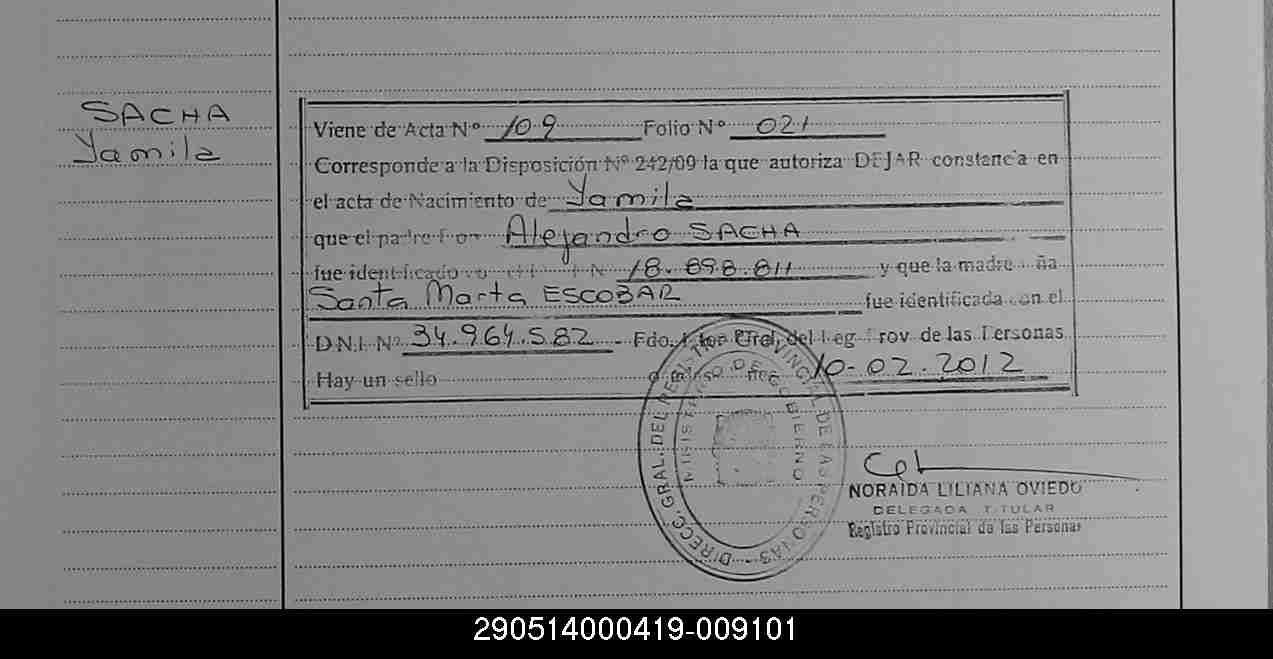 SACHA
Yamila
Viene de Acta Nº 109 Folio Nº 021
Corresponde a la Disposición Nº 242/09 la que autoriza DEJAR constancia en
el acta de Nacimiento de Yamila
que el padre Alejandro SACHA
fue identificado 18.898.811 y que la madre
Santa Marta ESCOBAR fue identificada con el
D.N.I. Nº 34.964.582 - Fdo. Gral. del Reg. Prov. de las Personas
Hay un sello 10-02-2012
DIRECC. GRAL. DEL REGISTRO PROVINCIAL DE LAS PERSONAS
MINISTERIO DE GOBIERNO
NORAIDA LILIANA OVIEDO
DELEGADA TITULAR
Registro Provincial de las Personas
290514000419-009101